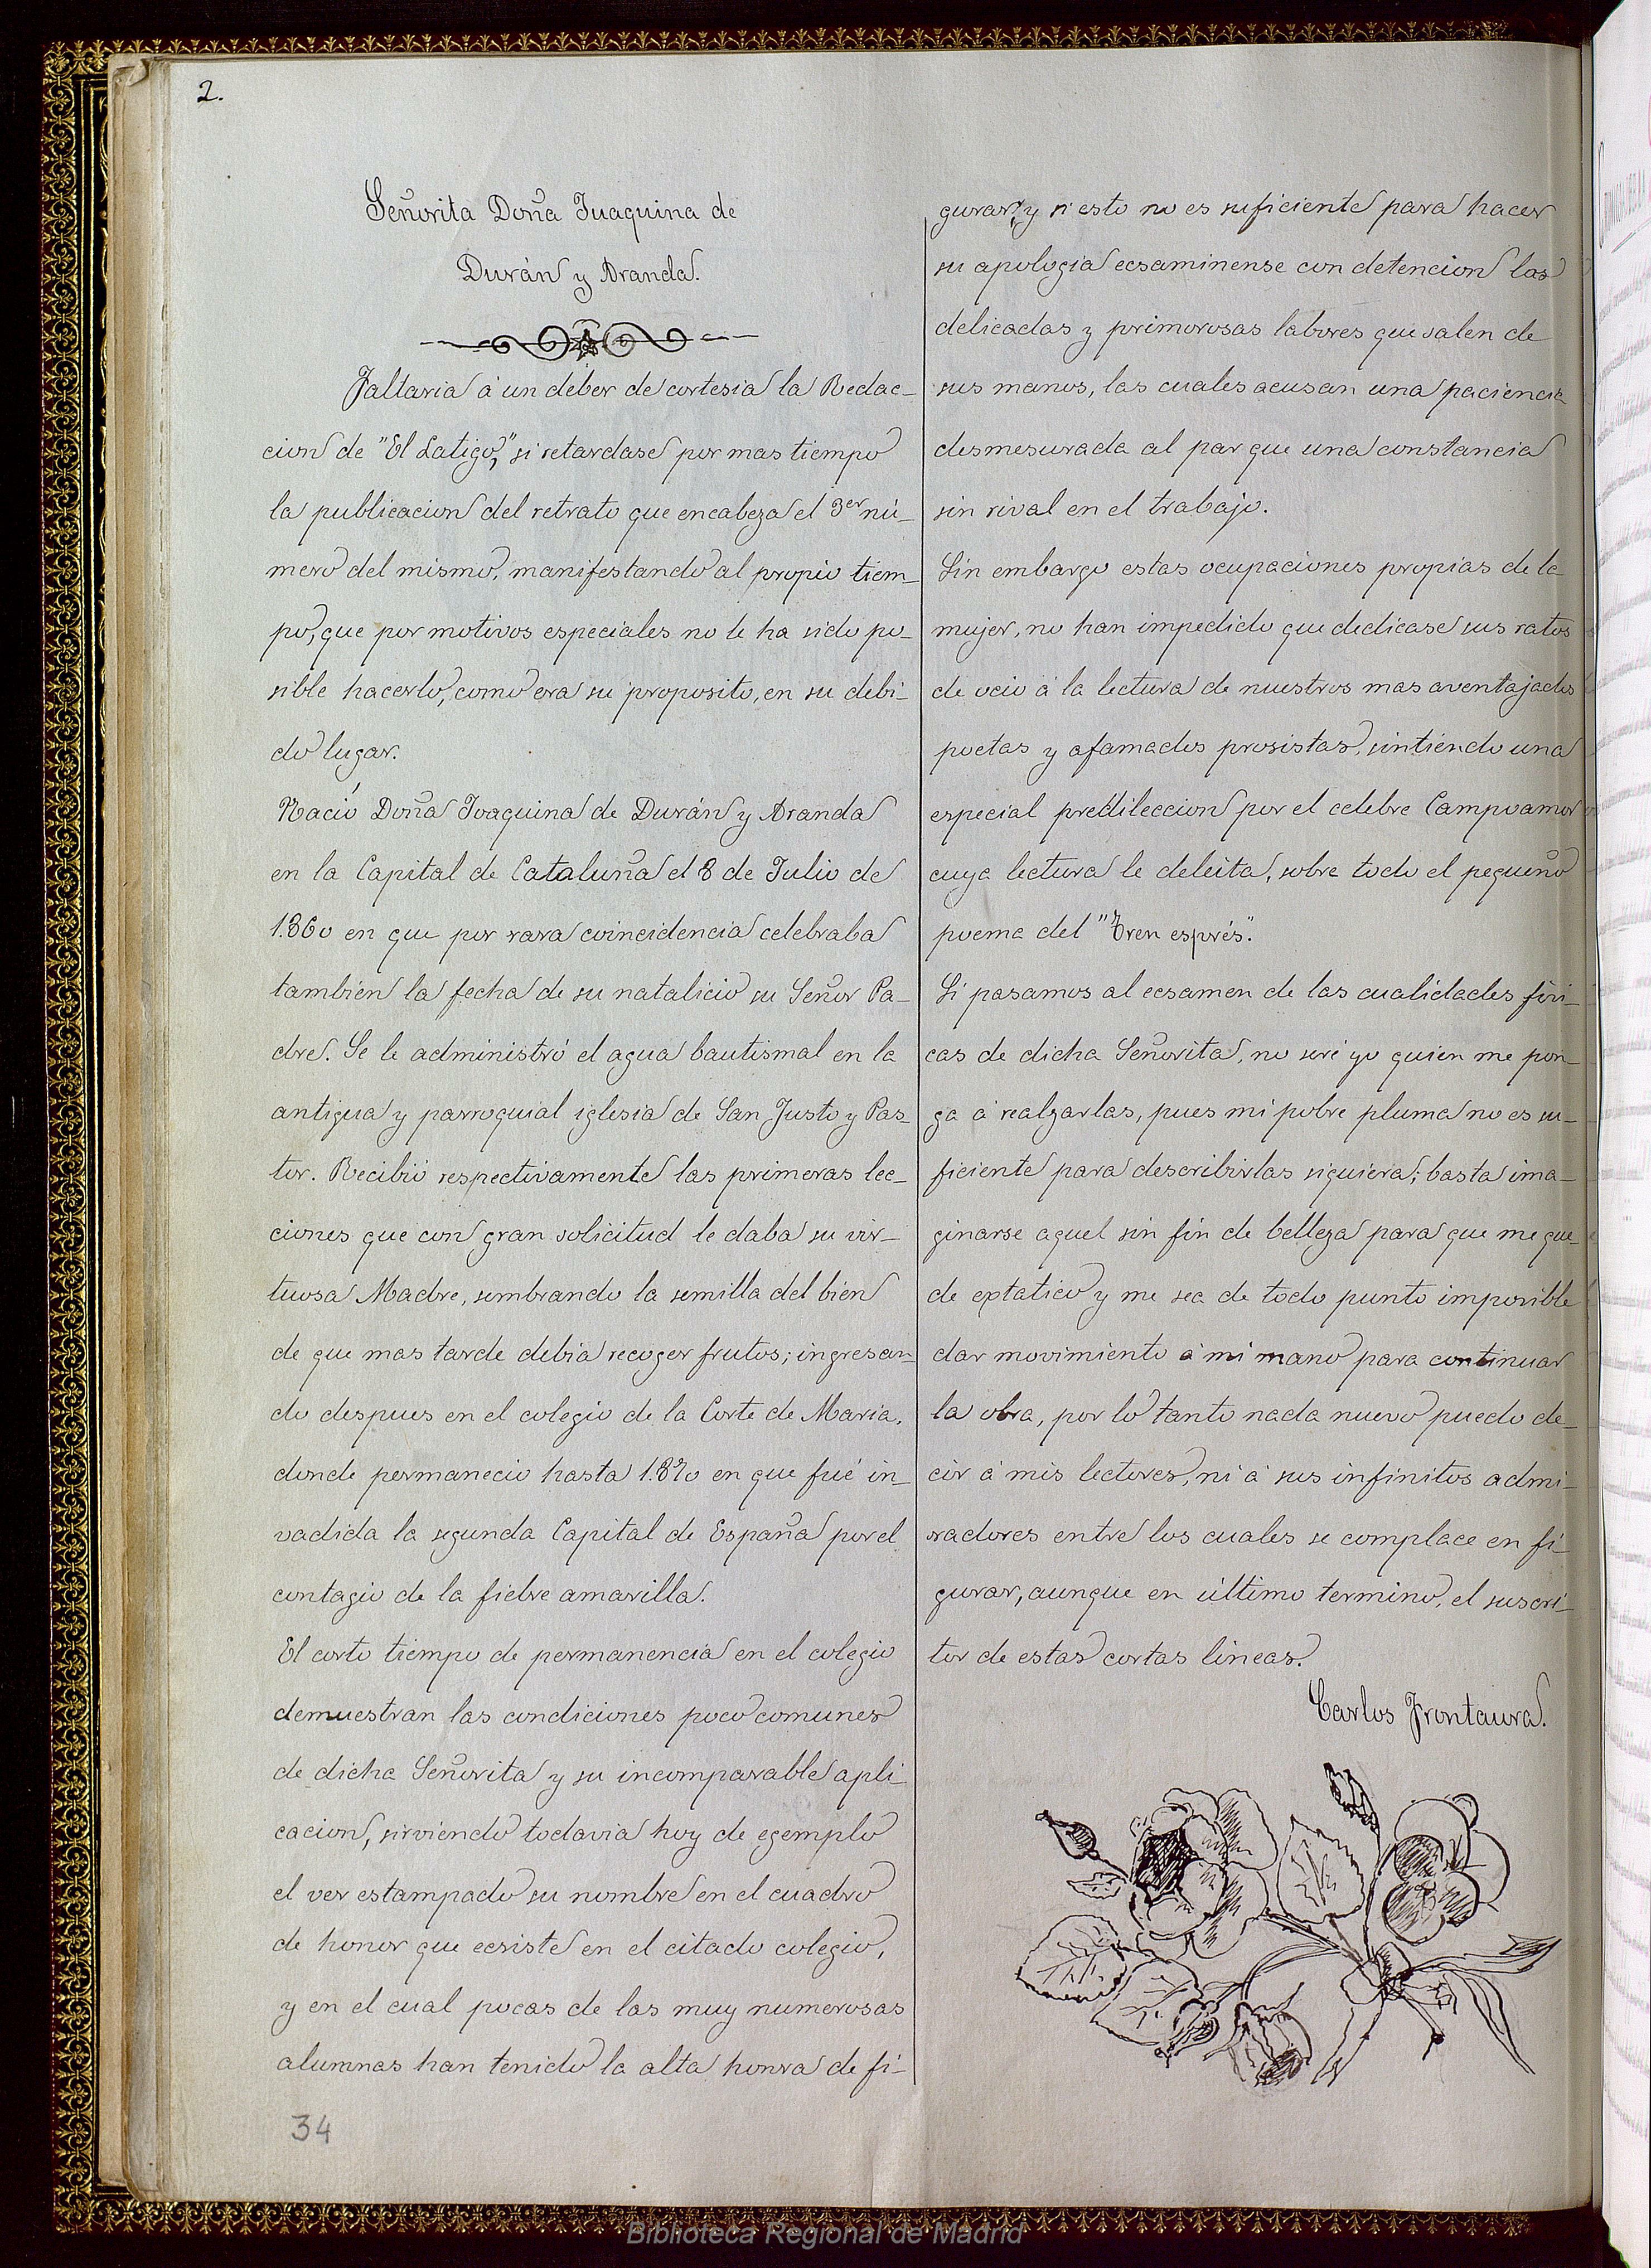 2.
Señorita Doña Juaquina de
Durán y Aranda.
Faltaria á un deber de cortesia la Redac-
cion de "El Latigo", si retardase por mas tiempo
la publicacion del retrato que encabeza el 3er nú-
mero del mismo, manifestando al propio tiem-
po, que por motivos especiales no le ha sido po-
sible hacerlo, como era su proposito, en su debi-
do lugar.
Nació Doña Joaquina de Durán y Aranda
en la Capital de Cataluña el 8 de Julio de
1.860 en que por rara coincidencia celebraba
tambien la fecha de su natalicio su Señor Pa-
dre. Se le administró el agua bautismal en la
antigua y parroquial iglesia de San Justo y Pas-
tor. Recibió respectivamente las primeras lec-
ciones que con gran solicitud le daba su vir-
tuosa Madre, sembrando la semilla del bien
de que mas tarde debia recoger frutos; ingresan-
do despues en el colegio de la Corte de Maria,
donde permanecio hasta 1.870 en que fué in-
vadida la segunda Capital de España por el
contagio de la fiebre amarilla.
El corto tiempo de permanencia en el colegio
demuestran las condiciones poco comunes
de dicha Señorita y su incomparable apli-
cacion, sirviendo todavia hoy de egemplo
el ver estampado su nombre en el cuadro
de honor que ecsiste en el citado colegio,
y en el cual pocas de las muy numerosas
alumnas han tenido la alta honra de fi-
34
gurar; y si esto no es suficiente para hacer
su apologia ecsaminense con detencion las
delicadas y primorosas labores que salen de
sus manos, las cuales acusan una paciencia
desmesurada al par que una constancia
sin rival en el trabajo.
Sin embargo estas ocupaciones propias de la
mujer, no han impedido que dedicase sus ratos
de ocio á la lectura de nuestros mas aventajados
poetas y afamados prosistas, sintiendo una
especial predileccion por el celebre Campoamor
cuya lectura le deleita, sobre todo el pequeño
poema del "Tren esprés".
Si pasamos al ecsamen de las cualidades fisi-
cas de dicha Señorita, no seré yo quien me pon-
ga á realzarlas, pues mi pobre pluma no es su-
ficiente para describirlas siquiera; basta ima-
ginarse aquel sin fin de belleza para que me que-
de extatico y me sea de todo punto imposible
dar movimiento á mi mano para continuar
la obra, por lo tanto nada nuevo puedo de-
cir á mis lectores, ni á sus infinitos admi-
radores entre los cuales se complace en fi-
gurar, aunque en último termino, el suscri-
tor de estas cortas lineas.
Carlos Frontaura.
Biblioteca Regional de Madrid